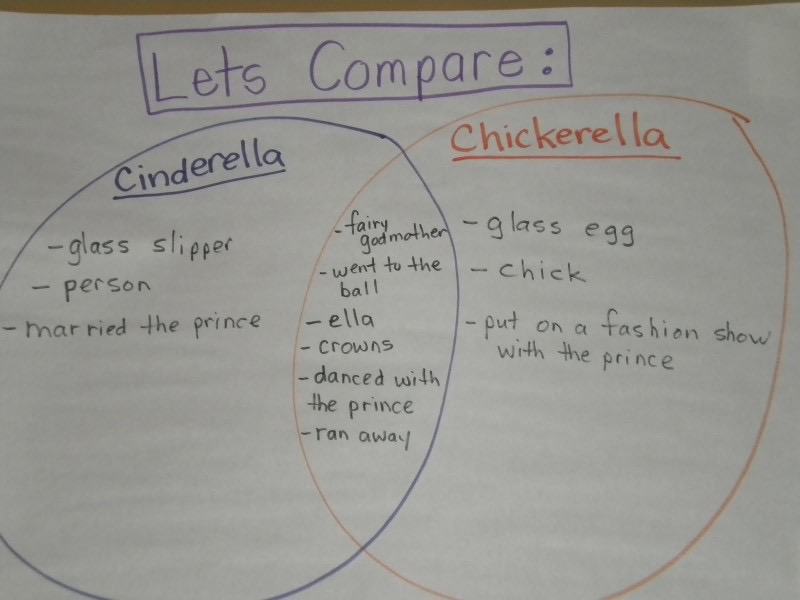 Lets Compare:
Cinderella
- glass slipper
- person
- married the prince
- fairy
godmother
- went to the
ball
- ella
- crowns
- danced with
the prince
- ran away
Chickerella
- glass egg
- chick
- put on a fashion show
with the prince